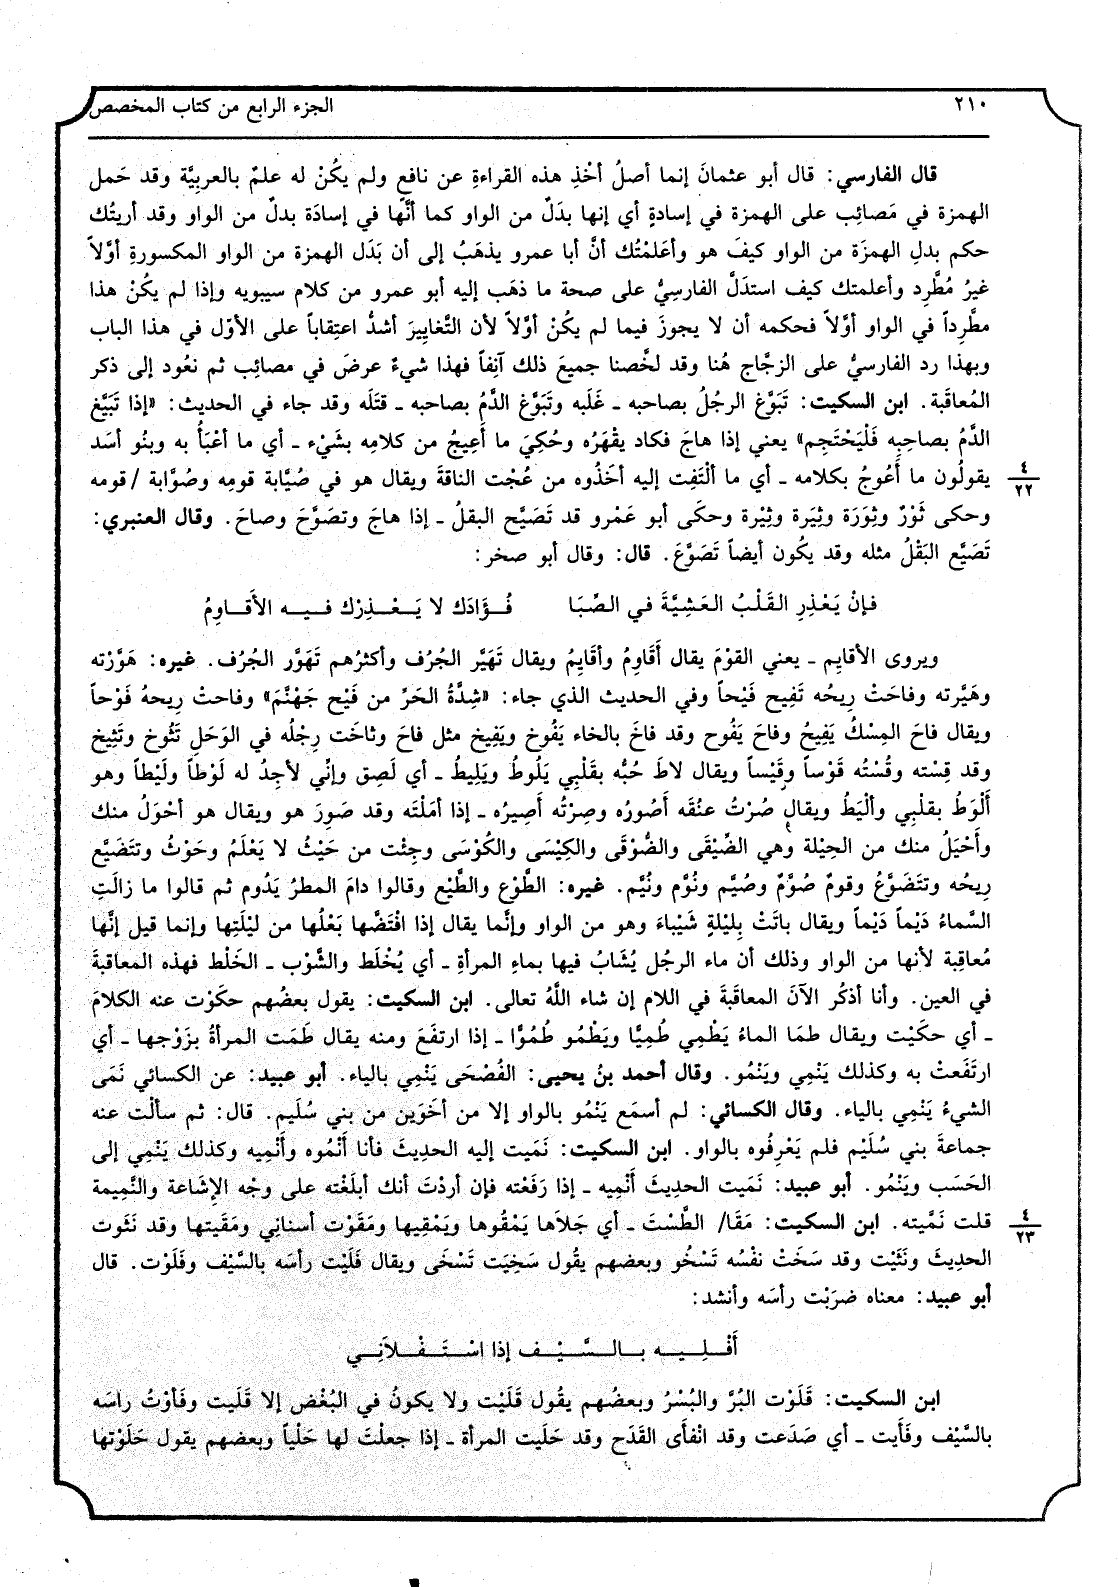 ٢١٠ الجزء الرابع من كتاب المخصص
قال الفارسي: قال أبو عثمانَ إنما أصلُ أخْذِ هذه القراءةِ عن نافعٍ ولم يكُنْ له علمٌ بالعربِيَّة وقد حَمل
الهمزة في مَصائِب على الهمزة في إسادةٍ أي إنها بدَلٌ من الواو كما أنَّها في إسادَة بدلٌ من الواو وقد أريتُك
حكم بدلِ الهمزَة من الواو كيفَ هو وأعَلمْتُك أنَّ أبا عمرو يذهَبُ إلى أن بَدَل الهمزة من الواو المكسورةِ أوَّلاً
غيرُ مُطَّرِد وأعلمتك كيف استدَلَّ الفارسِيُّ على صحة ما ذهَب إليه أبو عمرو من كلام سيبويه وإذا لم يكُنْ هذا
مطَّرِداً في الواو أوَّلاً فحكمه أن لا يجوزَ فيما لم يكُنْ أوَّلاً لأن التَّغايِيرَ أشدُّ اعتِقاباً على الأوّل في هذا الباب
وبهذا رد الفارسيُّ على الزجَّاج هُنا وقد لخَّصنا جميعَ ذلك آنِفاً فهذا شيءٌ عرضَ في مصائِب ثم نعُود إلى ذكر
المُعاقَبة. ابن السكيت: تَبَوَّغ الرجُلُ بصاحبه ـ غَلَبه وتَبَوَّغ الدَّمُ بصاحبه ـ قتَلَه وقد جاء في الحديث: «إذا تَبَيَّغ
الدَّمُ بصاحِبِه فَلْيَحْتَجِم» يعني إذا هاجَ فكاد يقْهَرُه وحُكِيَ ما أَعِيجُ من كلامِه بشَيْء ـ أي ما أعْبَأُ به وبنُو أسَد
يقولُون ما أَعُوجُ بكلامه ـ أي ما ألْتَفِت إليه أخَذُوه من عُجْت الناقةَ ويقال هو في صُيَّابة قومِه وصُوَّابة /قومه
٤
٢٢
وحكى ثَوْرٌ وثِوَرَة وثِيَرة وثِيْرة وحكَى أبو عَمْرو قد تَصَيَّح البقلُ ـ إذا هاجَ وتصَوَّحَ وصاحَ. وقال العنبري:
تَصَيَّع البَقْلُ مثله وقد يكُون أيضاً تَصَوَّعَ. قال: وقال أبو صخر:
فإنْ يَعْذِرِ القَلْبُ العَشِيَّةَ في الصِّبَا فُؤَادَك لا يَعْذِرْك فيه الأَقَاوِمُ
ويروى الأقايِم ـ يعني القوْمَ يقال أَقَاوِمُ وأقَايِمُ ويقال تَهَيَّر الجُرُف وأكثرُهم تَهَوَّر الجُرُف. غيره: هَوَّرْته
وهَيَّرته وفاحَتْ رِيحُه تَفِيح فَيْحاً وفي الحديث الذي جاء: «شِدَّةُ الحَرِّ من فَيْح جَهَنَّمَ» وفاحتْ رِيحهُ فَوْحاً
ويقال فاحَ المِسْكُ يَفِيحُ وفاحَ يَفُوح وقد فاخَ بالخاء يَفُوخ ويَفِيخ مثل فاحَ وثاخَت رِجْلُه في الوَحَلِ تَثُوخ وتَثِيخ
وقد قِسْته وقُسْتُه قَوْساً وقَيْساً ويقال لاطَ حُبُّه بقَلْبِي يَلُوطُ ويَلِيطُ ـ أي لَصِق وإنِّي لأجِدُ له لَوْطاً ولَيْطاً وهو
أَلْوَطُ بقلْبِي وألْيَطُ ويقال صُرْتُ عنُقَه أَصُورُه وصِرْتُه أَصِيرُه ـ إذا أمَلْتَه وقد صَوِرَ هو ويقال هو أحْوَلُ منك
وأَحْيَلُ منك من الحِيْلة وهي الضِّيْقَى والضُّوْقَى والكِيْسَى والكُوْسَى وجِئْت من حَيْثُ لا يَعْلَمُ وحَوْثُ وتتَضَيَّع
رِيحُه وتتَضَوَّعُ وقومٌ صُوَّمٌ وصُيَّم ونُوَّم ونُيَّم. غيره: الطَّوْع والطَّيْع وقالوا دامَ المطرُ يَدُوم ثم قالوا ما زالَتِ
السَّماءُ دَيْماً دَيْماً ويقال باتَتْ بِليْلةٍ شَيْباءَ وهو من الواو وإنَّما يقال إذا افْتَضَّها بَعْلُها من ليْلَتِها وإنما قيل إنَّها
مُعاقِبة لأنها من الواو وذلك أن ماء الرجُل يُشَابُ فيها بماءِ المرأةِ ـ أي يُخْلَط والشَّوْب ـ الخَلْط فهذه المعاقَبةَ
في العين. وأنا أذكُر الآنَ المعاقَبةَ في اللام إن شاء اللَّهُ تعالى. ابن السكيت: يقول بعضُهم حكَوْت عنه الكلامَ
ـ أي حكَيْت ويقال طمَا الماءُ يَطْمِي طُمِيًّا ويَطْمُو طُمُوًّا ـ إذا ارتفَعَ ومنه يقال طَمَت المرأةُ بزَوْجها ـ أي
ارتَفَعتْ به وكذلك يَنْمِي ويَنْمُو. وقال أحمد بنُ يحيى: الفُصْحَى يَنْمِي بالياء. أبو عبيد: عن الكسائي نَمَى
الشيءُ يَنْمِي بالياء. وقال الكسائي: لم أسمَع يَنْمُو بالواو إلا من أخَوَين من بني سُلَيم. قال: ثم سألْت عنه
جماعةَ بني سُلَيْم فلم يَعْرِفُوه بالواو. ابن السكيت: نَمَيت إليه الحديثَ فأنا أَنْمُوه وأَنْمِيه وكذلك يَنْمِي إلى
الحَسَب ويَنْمُو. أبو عبيد: نَمَيت الحديثَ أَنْمِيه ـ إذا رَفَعْته فإن أردْتَ أنك أبلَغْته على وجْه الإشَاعة والنَّمِيمة
قلت نَمَّيته. ابن السكيت: مَقَا/ الطَّسْتَ ـ أي جَلاَها يَمْقُوها ويَمْقِيها ومَقَوْت أسنانِي ومَقَيتها وقد نَثَوت
٤
٢٣
الحدِيثَ ونَثَيْت وقد سَخَتْ نفْسُه تَسْخُو وبعضهم يقُول سَخِيَت تَسْخَى ويقال فَلَيْت رأسَه بالسَّيْف وفَلَوْت. قال
أبو عبيد: معناه ضرَبْت رأسَه وأنشد:
أَفْلِيه بالسَّيْف إذا اسْتَفْلاَنِي
ابن السكيت: قَلَوْت البُرَّ والبُسْرُ وبعضُهم يقُول قَلَيْت ولا يكونُ في البُغْض إلا قَلَيت وفَأوْتُ راسَه
بالسَّيْف وفَأَيت ـ أي صَدَعت وقد انْفأَى القَدَح وقد حَلَيت المرأة ـ إذا جعلْتَ لها حَلْياً وبعضهم يقول حَلَوْتها